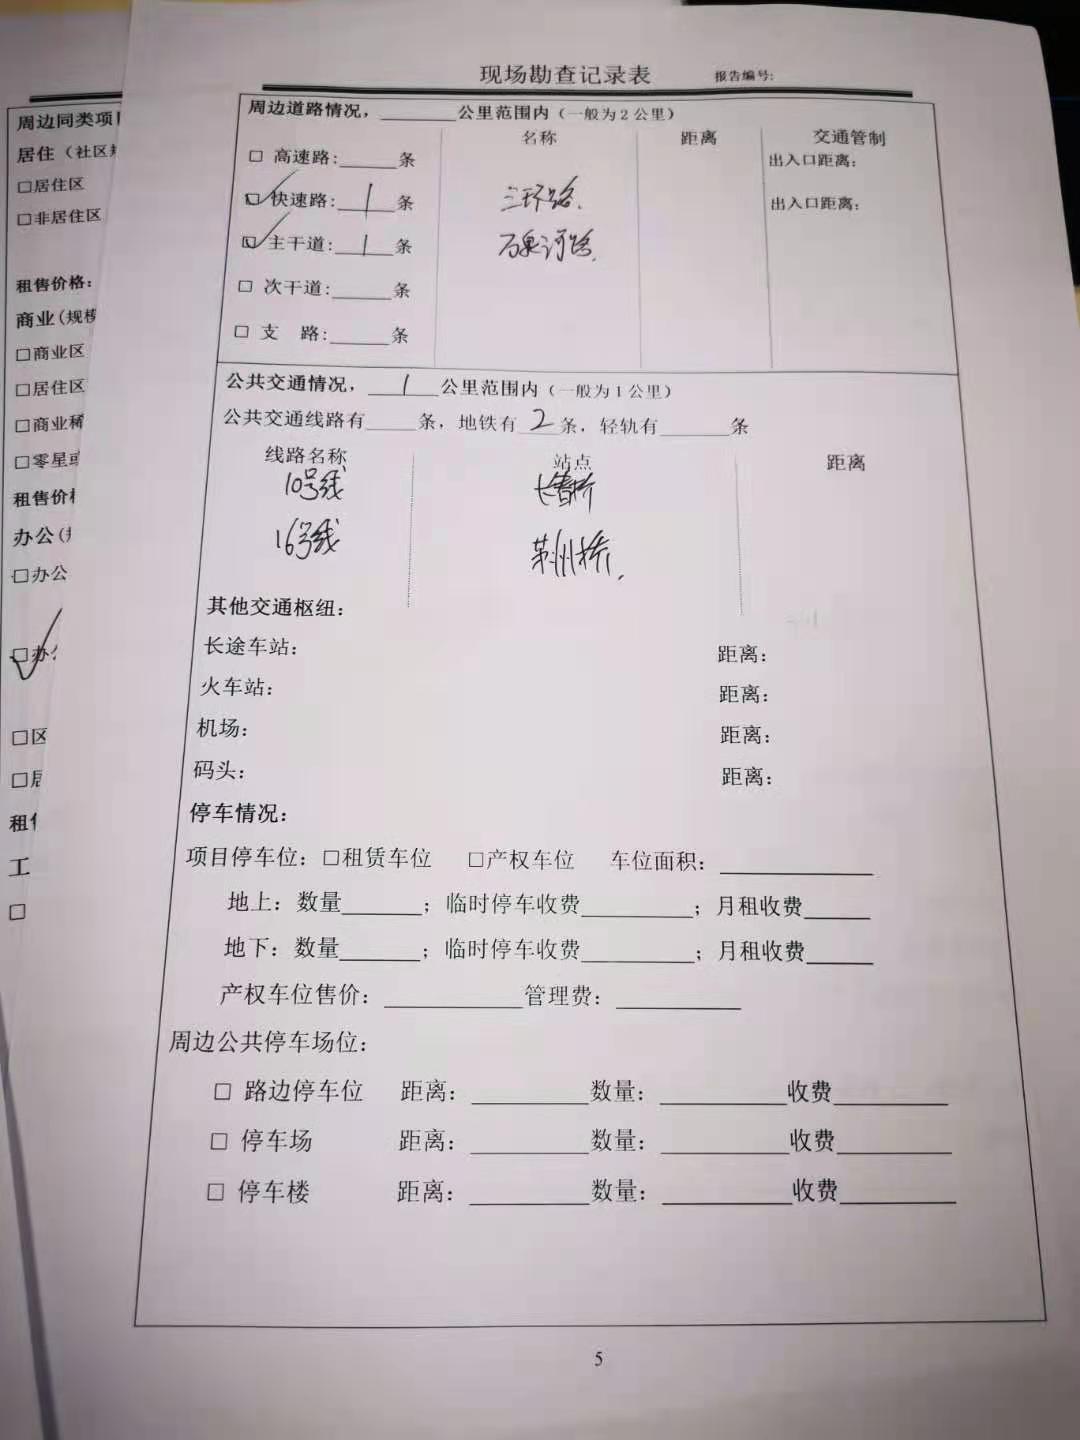 现场勘查记录表 报告编号:
周边道路情况，______公里范围内（一般为2公里）
名称 距离 交通管制
□ 高速路:_____条 出入口距离：
☑ 快速路: 1 条 三环路. 出入口距离：
☑ 主干道: 1 条 万泉河路.
□ 次干道:_____条
□ 支 路:_____条
公共交通情况， 1 公里范围内（一般为1公里）
公共交通线路有____条，地铁有 2 条，轻轨有_____条
线路名称 站点 距离
10号线 长春桥
16号线 苏州桥.
其他交通枢纽：
长途车站： 距离：
火车站： 距离：
机场： 距离：
码头： 距离：
停车情况：
项目停车位：□租赁车位 □产权车位 车位面积：__________
地上：数量_____；临时停车收费_______；月租收费____
地下：数量_____；临时停车收费_______；月租收费____
产权车位售价：_________管理费：________
周边公共停车场位：
□ 路边停车位 距离：________数量：________收费________
□ 停车场 距离：________数量：________收费________
□ 停车楼 距离：________数量：________收费________
5
周边同类项
居住（社区
□居住区
□非居住区
租售价格：
商业(规模
□商业区
□居住区
□商业稀
□零星或
租售价格
办公(规
□办公
☑办公
□区
□居
租售
工
□